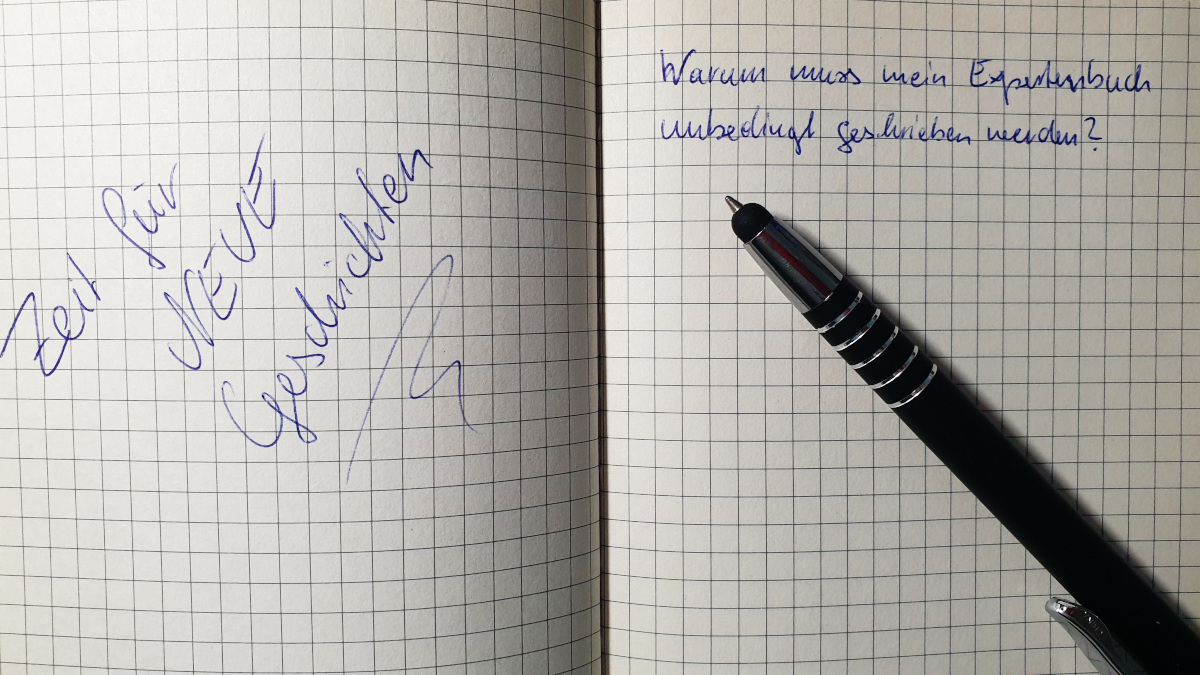 Zeit für
NEUE
Geschichten
Warum muss mein Expertenbuch
unbedingt geschrieben werden?